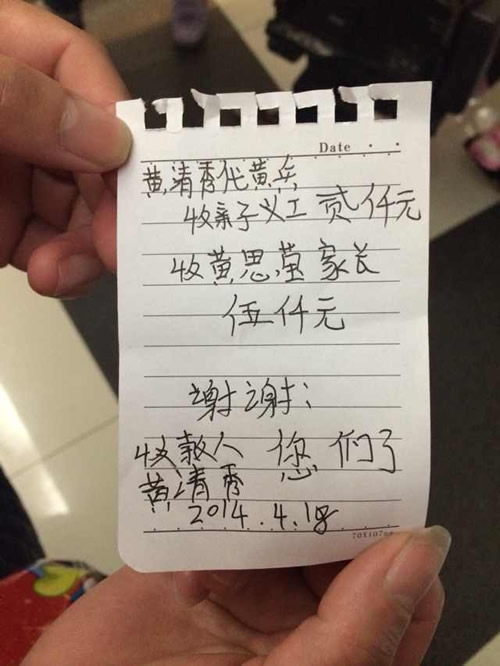 Date
黄清秀代黄兵
收亲子义工贰仟元
收黄思莹家长
伍仟元
谢谢:
收款人 您们了
黄清秀
2014.4.18